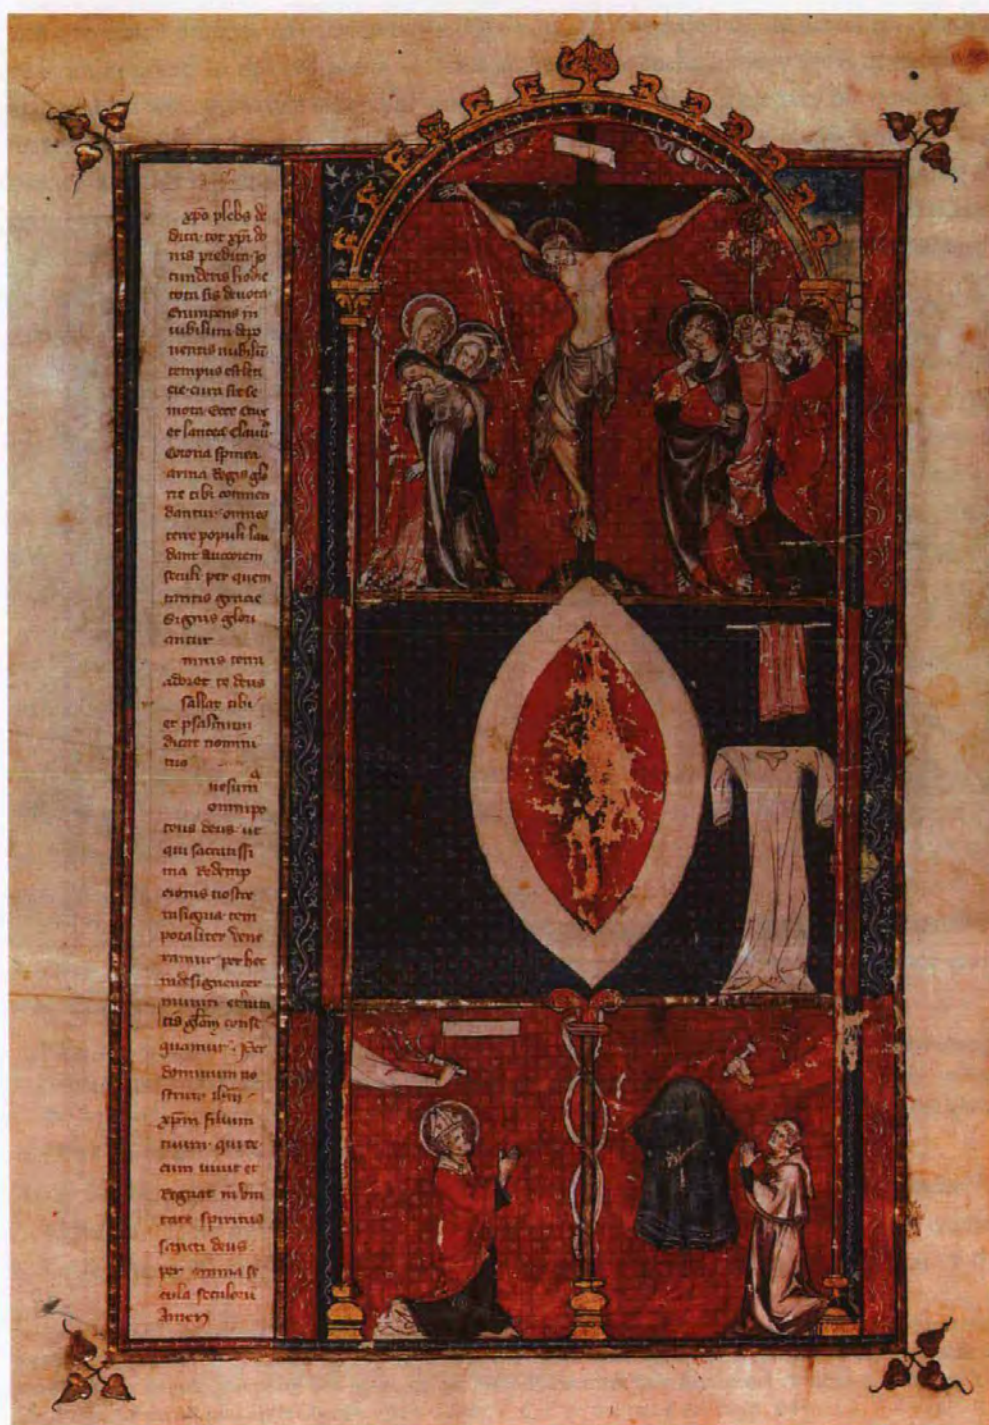 xpo plebs de
dita tot xpi do
nis predita Jo
cunderis hodie
tota sis deuota
Erumpens in
iubilum depo
nentis nubilum
tempus est leti
cie cura sit se
mota Ecce Crux
et lancea Clauus
Corona spinea
arma Regis glo
rie tibi commen
dantur omnes
terre populi lau
dant auctorem
seculi per quem
tantis gracie
Signis glori
antur
mnis terra
adoret te deus
psallat tibi
et psalmum
dicat nomini
tuo
uesumus
omnipo
tens deus ut
qui sacratissi
ma Redemp
cionis nostre
insignia tem
poraliter vene
ramur per hec
indesinenter
muniti eternita
tis gloriam conse
quamur Per
dominum no
strum ihm
xpm filium
tuum qui te
cum uiuit et
Regnat in vni
tate spiritus
sancti deus
per omnia se
cula seculorum
Amen